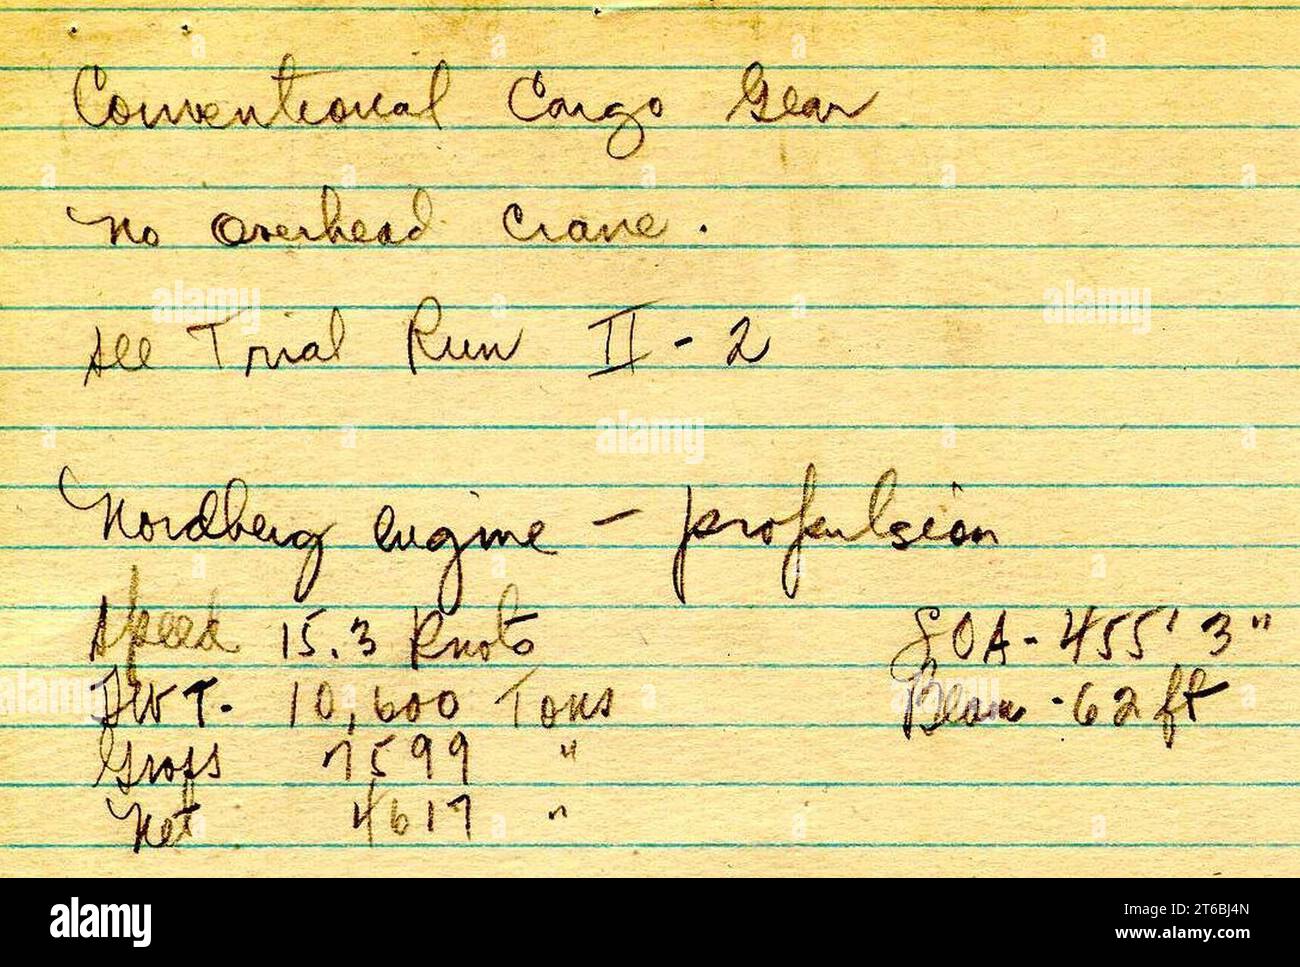 Conventional Cargo Gear
No Overhead Crane.
See Trial Run II - 2
Nordberg engine - propulsion
Speed 15.3 Knots LOA - 455' 3"
DWT. 10,600 Tons Beam - 62 ft
Gross 7599 "
Net 4617 "
alamy
Image ID: 2T6BJ4N
www.alamy.com